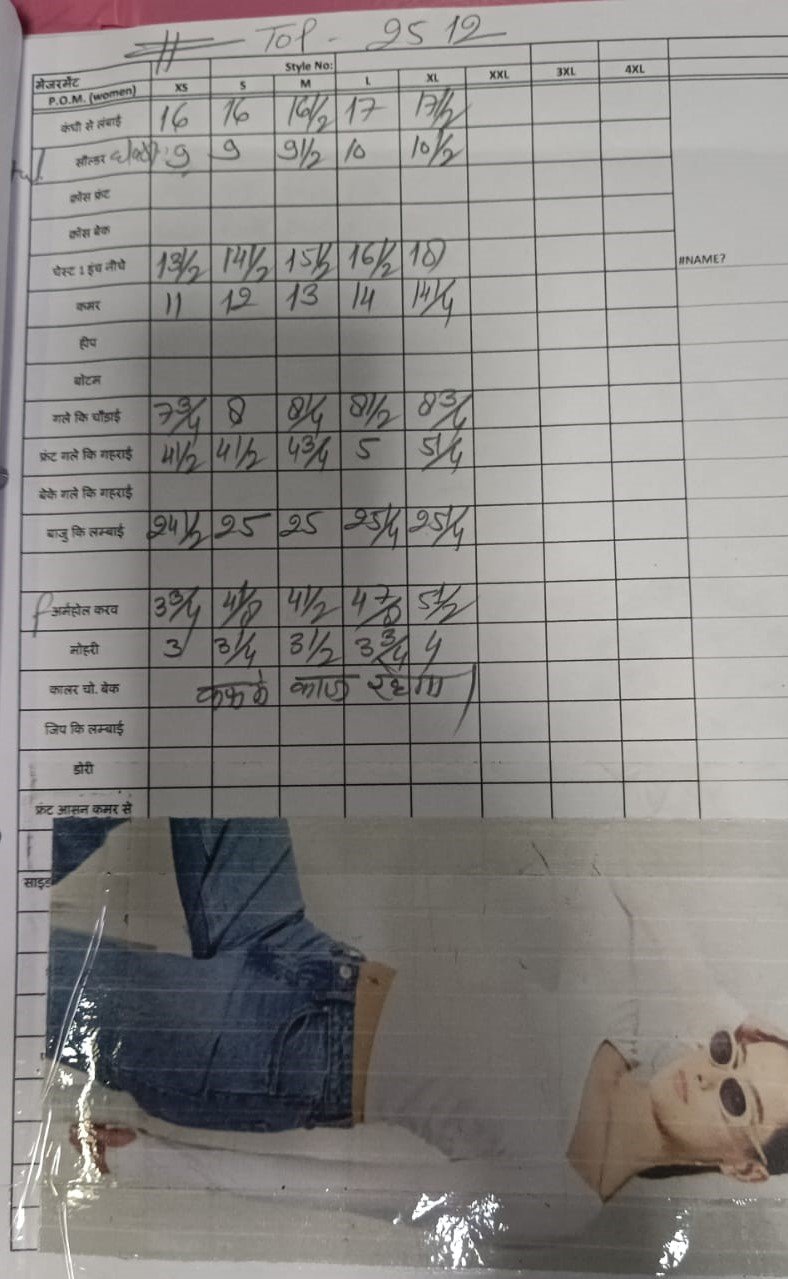 Top - 2512
मेजरमेंट Style No:
P.O.M. (women) XS S M L XL XXL 3XL 4XL
कंधी से लंबाई 16 16 16 1/2 17 17 1/2
सोल्डर 9 9 9 1/2 10 10 1/2
क्रोस फ्रंट
क्रोस बेक
चेस्ट 1 इंच नीचे 13 1/2 14 1/2 15 1/2 16 1/2 18 #NAME?
कमर 11 12 13 14 14 1/4
हीप
बोटम
गले कि चौड़ाई 7 3/4 8 8 1/4 8 1/2 8 3/4
फ्रंट गले कि गहराई 4 1/2 4 1/2 4 3/4 5 5 1/4
बेके गले कि गहराई
बाजु कि लम्बाई 24 1/2 25 25 25 1/4 25 1/4
अर्महोल करव 3 3/4 4 1/8 4 1/2 4 7/8 5 1/2
मोहरी 3 3 1/4 3 1/2 3 3/4 4
कालर चो. बेक काज
जिप कि लम्बाई
डोरी
फ्रंट आसन कमर से
साइड